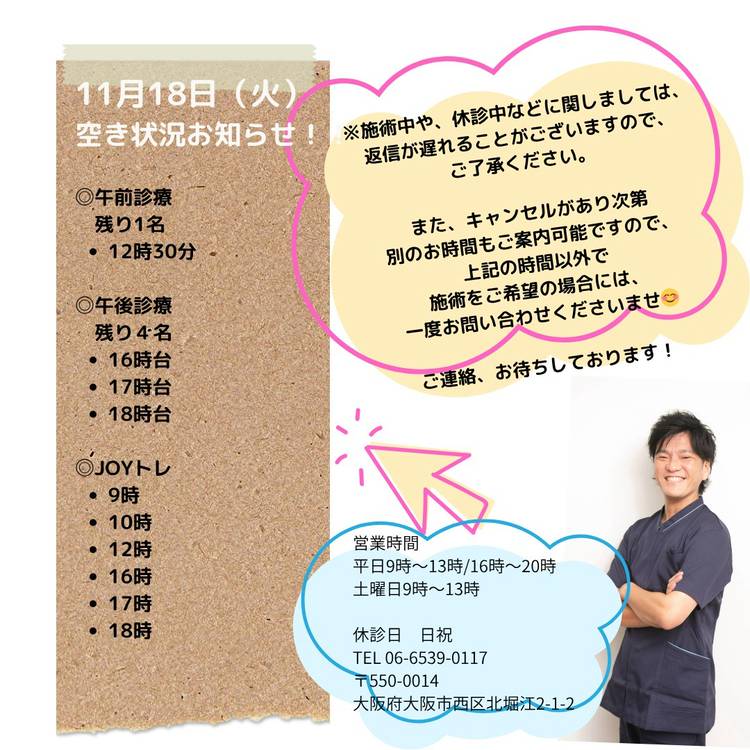 11月18日（火）
空き状況お知らせ！
◎午前診療
残り1名
• 12時30分
◎午後診療
残り４名
• 16時台
• 17時台
• 18時台
◎JOYトレ
• 9時
• 10時
• 12時
• 16時
• 17時
• 18時
※施術中や、休診中などに関しましては、
返信が遅れることがございますので、
ご了承ください。
また、キャンセルがあり次第
別のお時間もご案内可能ですので、
上記の時間以外で
施術をご希望の場合には、
一度お問い合わせくださいませ😊
ご連絡、お待ちしております！
営業時間
平日9時〜13時/16時〜20時
土曜日9時〜13時
休診日　日祝
TEL 06-6539-0117
〒550-0014
大阪府大阪市西区北堀江2-1-2